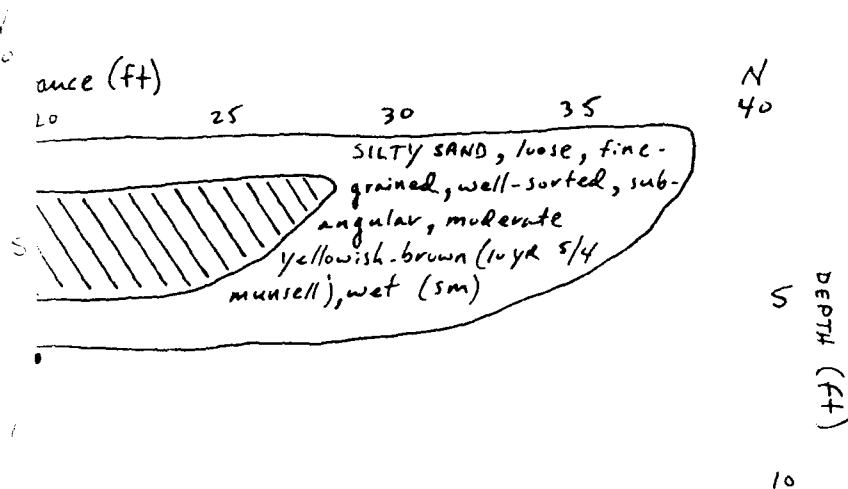 N
ance (ft)
20 25 30 35 40
SILTY SAND, loose, fine-
grained, well-sorted, sub-
angular, moderate
yellowish-brown (10 YR 5/4
munsell), wet (sm)
5
DEPTH (ft)
10